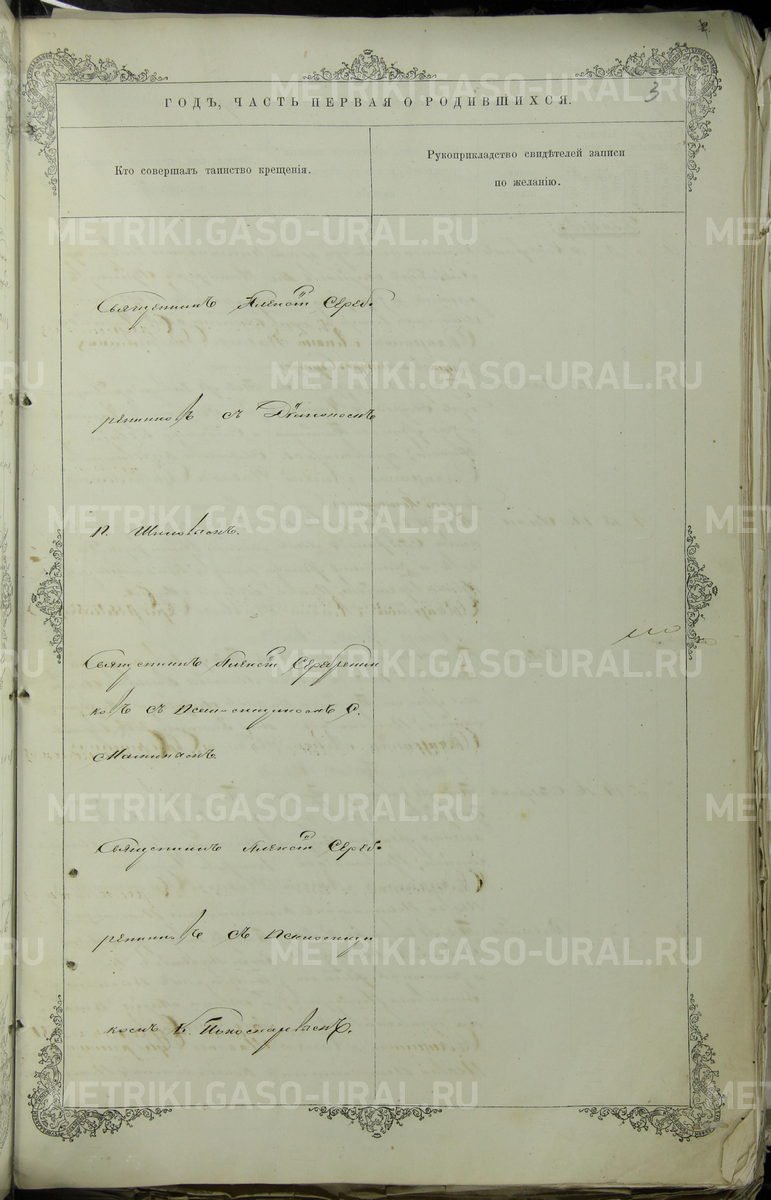 3
ГОДЪ, ЧАСТЬ ПЕРВАЯ О РОДИВШИХСЯ.
Кто совершалъ таинство крещенія.
Рукоприкладство свидѣтелей записи
по желанію.
Священникъ Алексѣй Сереб-
рениковъ съ Діакономъ
П. Шиловымъ.
Священникъ Алексѣй Серебренни
ковъ съ Псаломщикомъ С.
Мамин
Священникъ Алексѣй Сереб-
рениковъ съ Псаломщи
комъ
METRIKI.GASO-URAL.RU